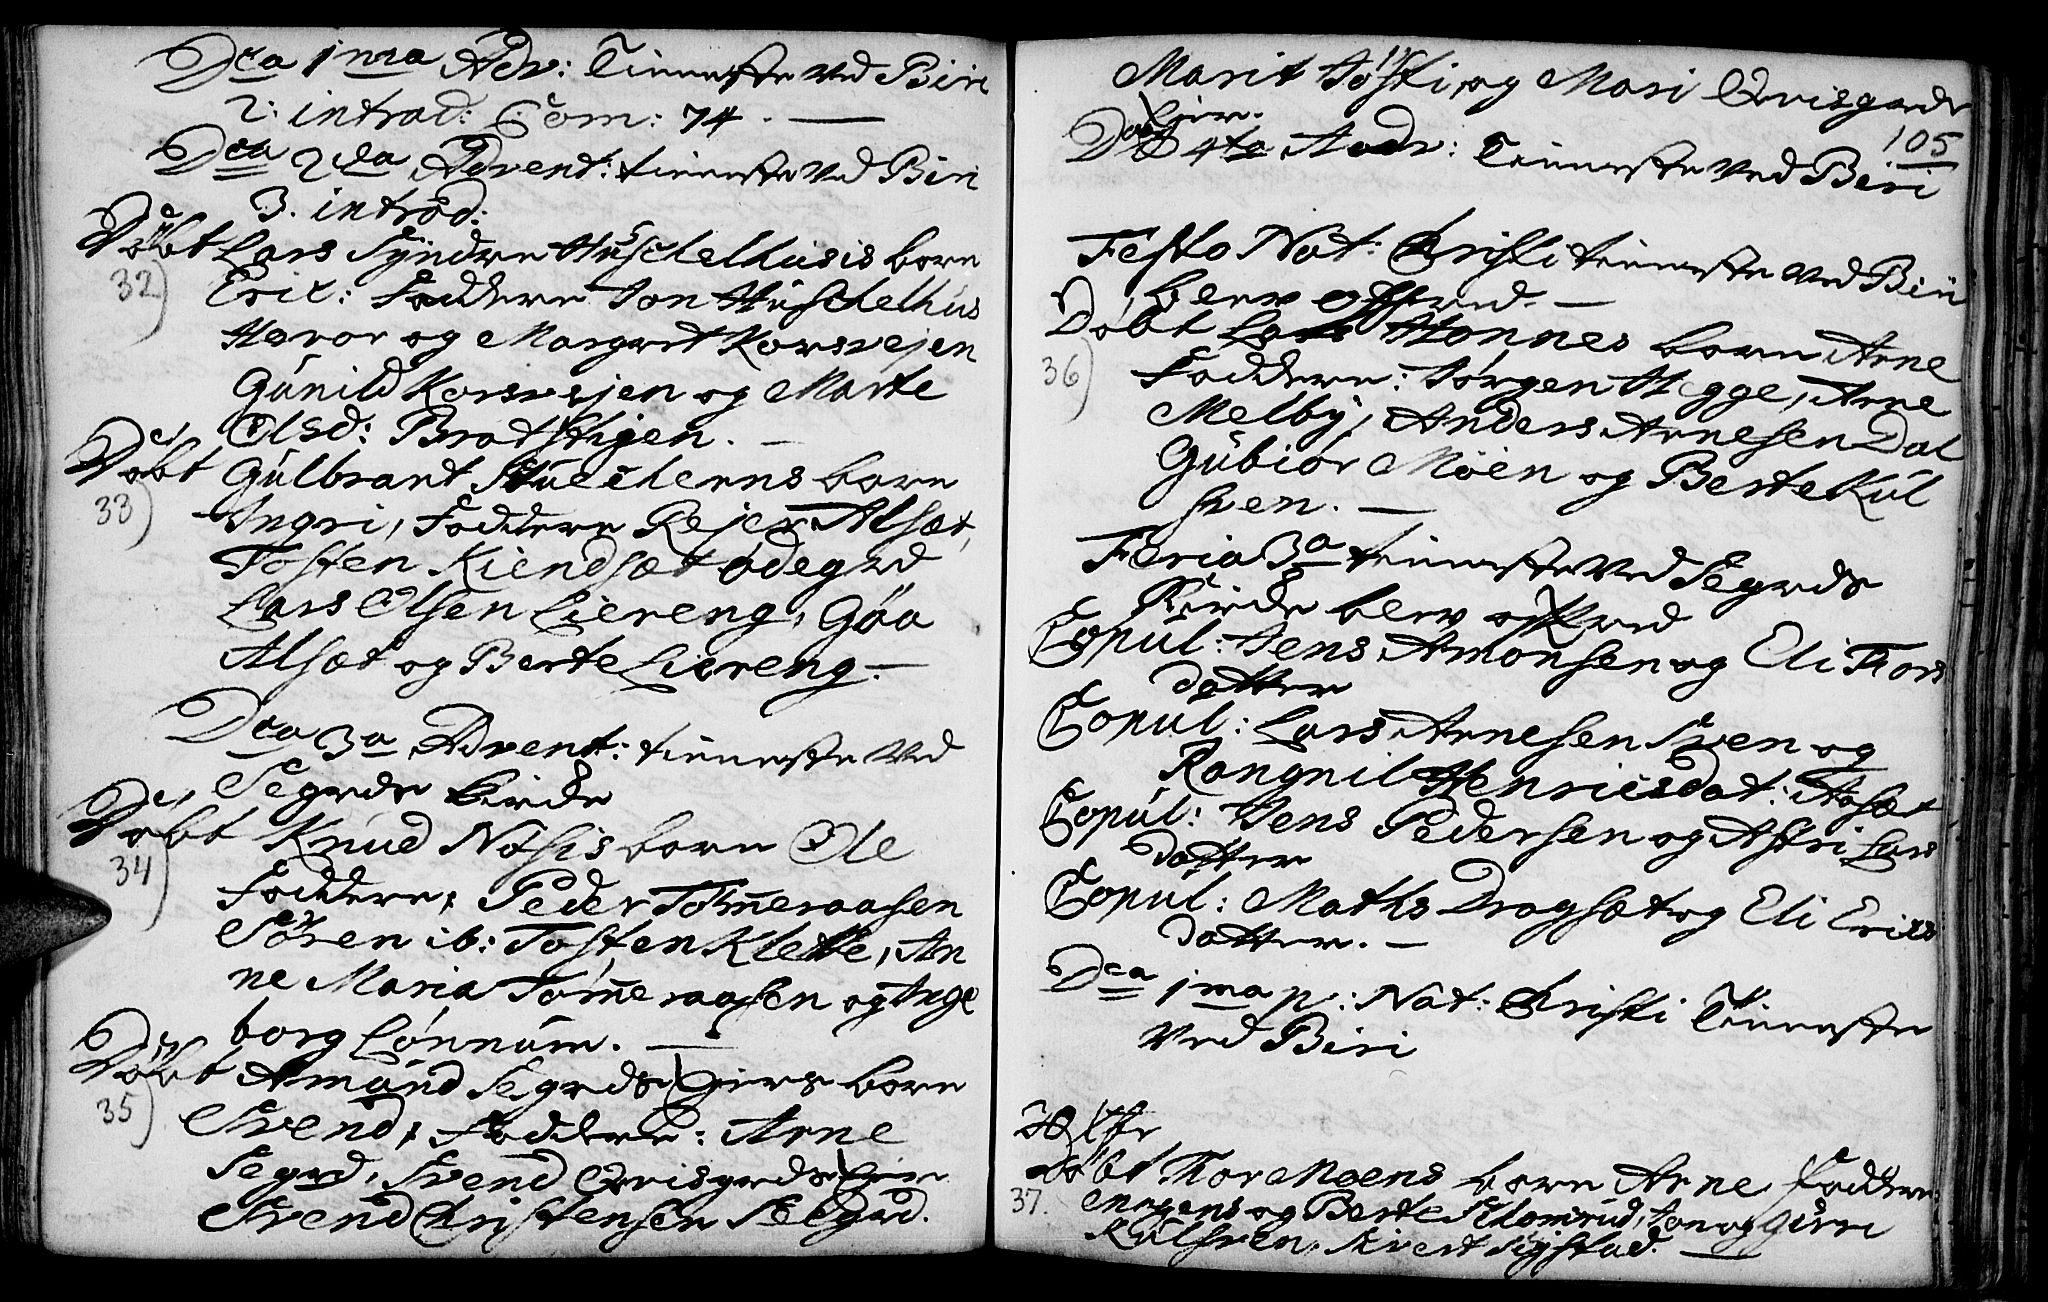 Dca 1ma Adv: Tienneste ved Biri
2: introd: Com: 74. —
Dca 2da Advent: tienneste ved Biri
3. introd:
Döbt Lars Syndre Huschelhusis barn
32) Eric: Faddere Jon Huschelhus
Havor og Margret Korsvejen
Gunild Korsvejen og Marte
Olsd: Bratstigen. —
Döbt Gulbrant barn
33) Ingri, Faddere Rejer Alsæt,
Tosten Kiendsæt ödegrd
Lars Olsen Liereng, Göa
Alsæt og Berte Liereng. —
Dca 3a Advent: tienneste ved
Segrds kirche
Döbt Knud Nösis barn Ole
34) Faddere, Peder Tömeraasen
Sören ib: Tosten Klette, An
ne Maria Tömeraasen og Inge
borg Lönnum. —
Döbt Amund Segrds Eiers barn
35) Svend, Faddere: Arne
Segrd, Svend Qvisgrds Eier
Svend Christensen Selgrd.
Marit Tösti, og Mari Qvisgrds
Eier.
105
Dca 4ta Adv: Tienneste ved Biri
Festo Nat: Christi tienneste ved Biri
blev offred. —
Döbt Lars Honnes barn Arne
36) Faddere: Jörgen Hegge, Arne
Melby, Anders Arnesen Dal
Gubiör Möen og Berte Kul
sven. —
Feria 3a tienneste ved Segrds
Kirche blev offred
Copul: Jens Amonsen og Eli Thors
datter
Copul: Lars Arnesen Sven og
Rangnil Henricsdat: Aasæt
Copul: Jens Pedersen og Astri Lars
datter
Copul: Maths Dragsæt og Eli Erics
datter. —
Dca 1ma p: Nat: Christi Tienneste
ved Biri
Döbt Thor Moens barn Arne Faddere:
37. Mogens og Berte Skomrud, Jon og Gurri
Kulsven, Sivert Sigstad. —